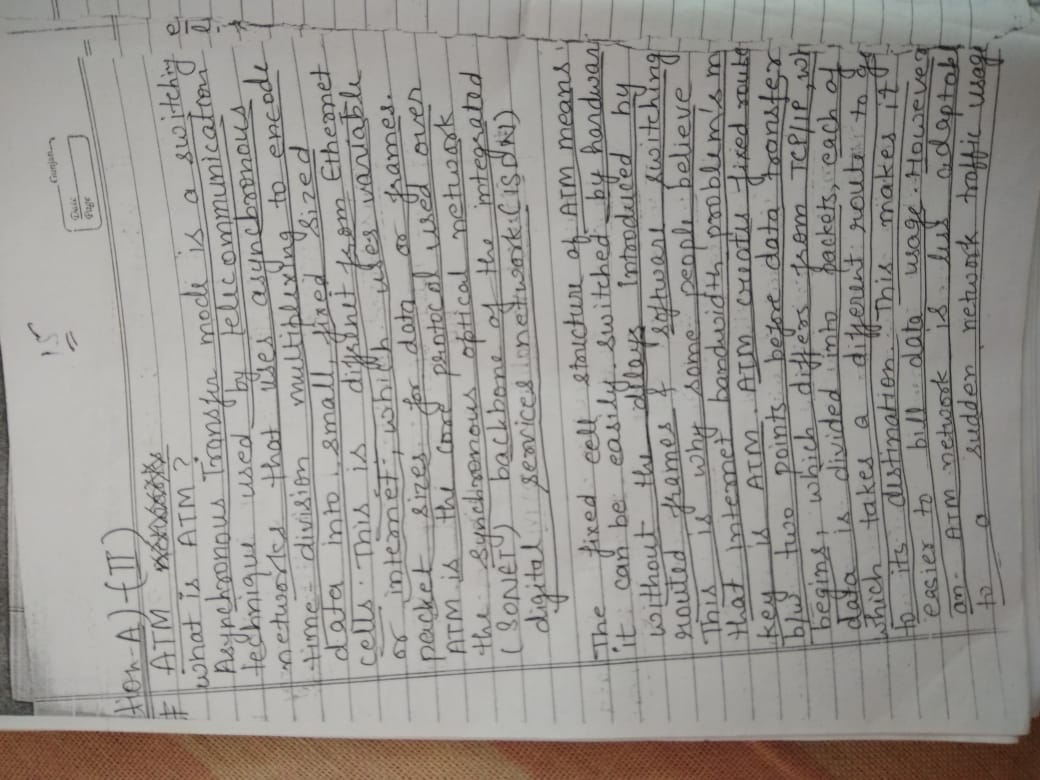 15
Gunjan
Date
Page
tion-A) - (II)
# ATM
what is ATM?
Asynchronous Transfer mode is a switching
technique used by telecommunication
networks that uses asynchronous
time-division multiplexing to encode
data into small, fixed sized
cells. This is different from Ethernet
or internet, which uses variable
packet sizes for data or frames.
ATM is the core protocol used over
the synchronous optical network
(SONET) backbone of the integrated
digital services network (ISDN)
The fixed cell structure of ATM means
it can be easily switched by hardwar
without the delays introduced by
routed frames & software switching
This is why some people believe
that internet bandwidth problem's
key is ATM. ATM creates fixed route
b/w two points before data transfer
begins, which differs from TCP/IP, wh
data is divided into packets, each of
which takes a different route to g
to its destination. This makes it
easier to bill data usage. However
an ATM network is less adaptabl
to a sudden network traffic usage